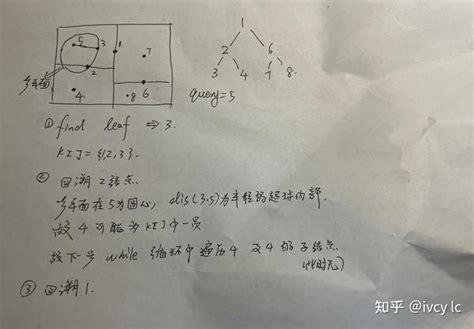 5 3 1 7
2
4 8 6
多平面
1
2 6
3 4 7 8.
query=5
① find leaf ⇒ 3.
K[]={2,3}.
② 回溯2结点.
平面在5为圆心, dis(3,5)为半径的超球内部.
故4可能为K[]中一员
故下一步 while 循环中遍历4 及4的子结点.
(此时无)
③ 回溯1.
知乎 @ivcy lc